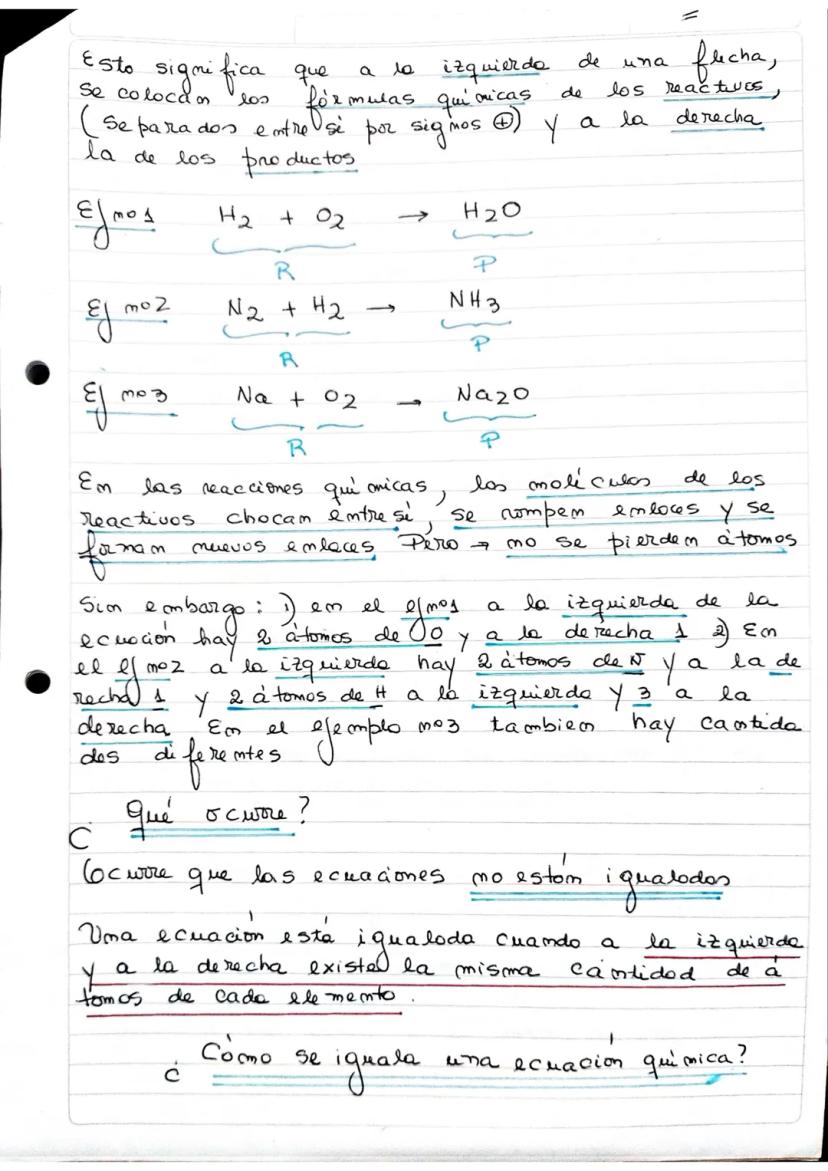 =
Esto significa que a la izquierda de una flecha,
se colocan las fórmulas químicas de los reactivos,
(separados entre sí por signos ⊕) y a la derecha
la de los productos
Ej nº1 H2 + O2 → H2O
R P
Ej nº2 N2 + H2 → NH3
R P
Ej nº3 Na + O2 → Na2O
R P
En las reacciones químicas, las moléculas de los
reactivos chocan entre sí, se rompen enlaces y se
forman nuevos enlaces Pero → no se pierden átomos
Sin embargo: 1) en el ej nº1 a la izquierda de la
ecuación hay 2 átomos de O y a la derecha 1 2) En
el ej nº2 a la izquierda hay 2 átomos de N y a la de
recha 1 y 2 átomos de H a la izquierda y 3 a la
derecha En el ejemplo nº3 tambien hay cantida
des diferentes
¿Qué ocurre?
Ocurre que las ecuaciones no están igualadas
Una ecuación está igualada cuando a la izquierda
y a la derecha existe la misma cantidad de á
tomos de cada elemento.
¿Cómo se iguala una ecuación química?